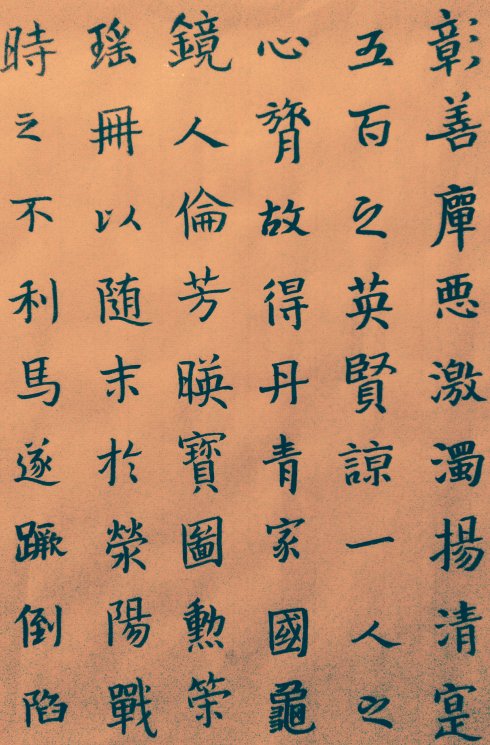 彰善癉悪激濁揚清寔
五百之英賢諒一人之
心膂故得丹青家國龜
鏡人倫芳暎寶圖勲策
瑶冊以随末於滎陽戰
時之不利馬遂蹶倒陷